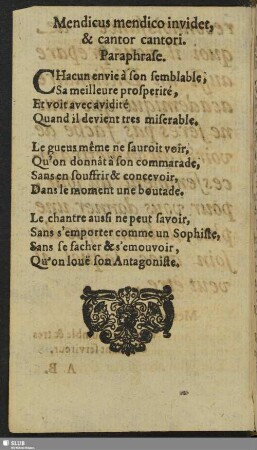 Mendicus mendico invidet,
& cantor cantori.
Paraphrase.
CHacun envie à son semblable,
Sa meilleure prosperité,
Et voit avec avidité
Quand il devient tres miserable.
Le gueus même ne sauroit voir,
Qu'on donnât à son commarade,
Sans en souffrir & concevoir,
Dans le moment une boutade.
Le chantre aussi ne peut savoir,
Sans s'emporter comme un Sophiste,
Sans se facher & s'emouvoir,
Qu'on louë son Antagoniste.
SLUB